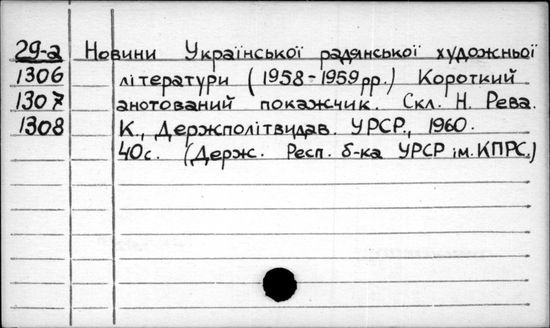 29-а Новини Української радянської художньої
1306 літератури (1958-1959рр.) Короткий
1307 анотований покажчик. Скл. Н. Рева.
1308 К., Держполітвидав. УРСР., 1960.
40с. (Держ. Респ. б-ка УРСР ім. КПРС.)